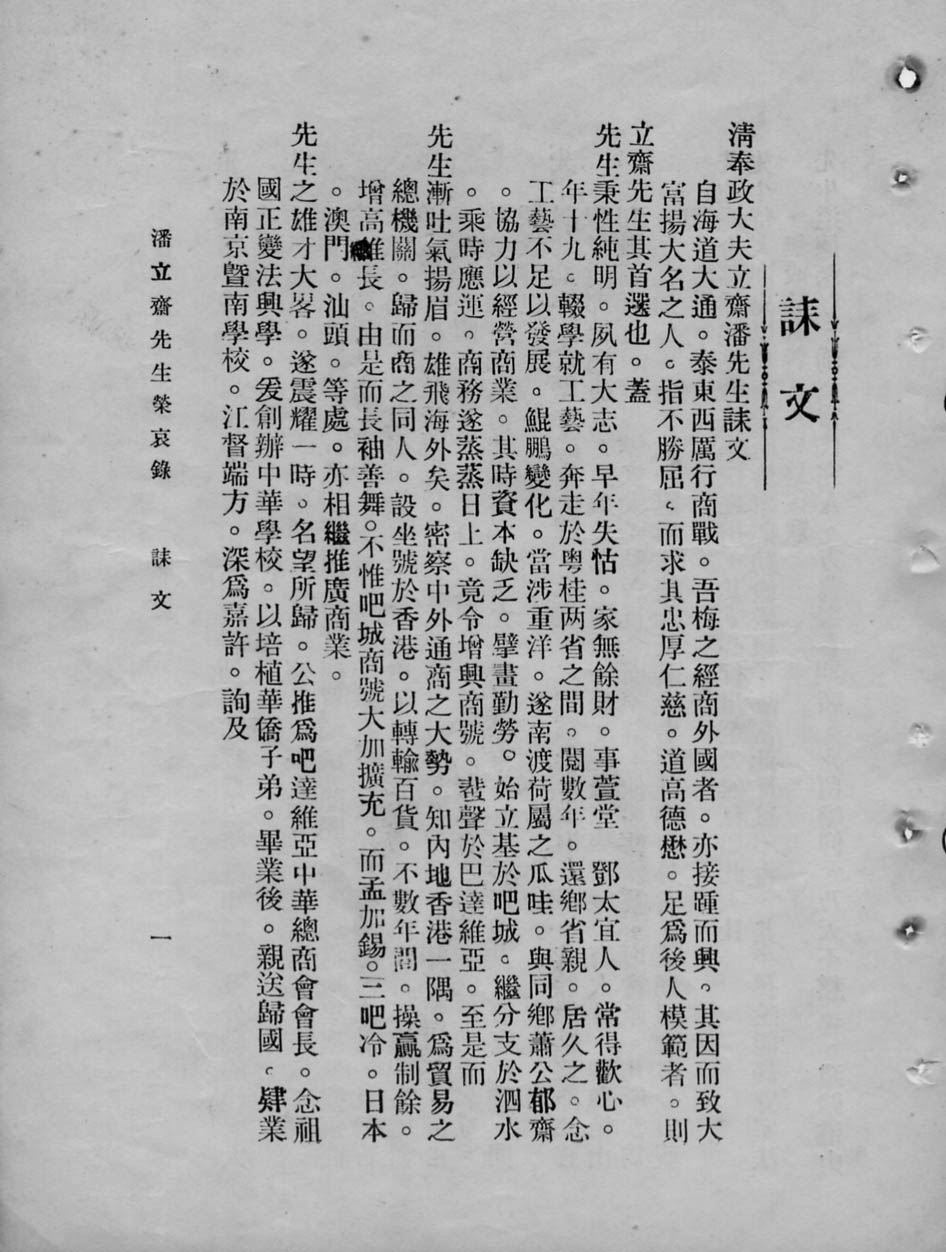 誄文
清奉政大夫立齋潘先生誄文
自海道大通。泰東西厲行商戰。吾梅之經商外國者。亦接踵而興。其因而致大
富揚大名之人。指不勝屈。而求其忠厚仁慈。道高德懋。足爲後人模範者。則
立齋先生其首選也。蓋
先生秉性純明。夙有大志。早年失怙。家無餘財。事萱堂 鄧太宜人。常得歡心。
年十九。輟學就工藝。奔走於粵桂两省之間。閱數年。還鄉省親。居久之。念
工藝不足以發展。鯤鵬變化。當涉重洋。遂南渡荷屬之瓜哇。與同鄉蕭公郁齋
。協力以經營商業。其時資本缺乏。擘畫勤勞。始立基於吧城。繼分支於泗水
。乘時應運。商務遂蒸蒸日上。竟令增興商號。蜚聲於巴達維亞。至是而
先生漸吐氣揚眉。雄飛海外矣。密察中外通商之大勢。知內地香港一隅。爲貿易之
總機關。歸而商之同人。設坐號於香港。以轉輸百貨。不數年間。操贏制餘。
增高繼長。由是而長袖善舞。不惟吧城商號大加擴充。而孟加錫。三吧冷。日本
。澳門。汕頭。等處。亦相繼推廣商業。
先生之雄才大畧。遂震耀一時。名望所歸。公推爲吧達維亞中華總商會會長。念祖
國正變法興學。爰創辦中華學校。以培植華僑子弟。畢業後。親送歸國。肄業
於南京暨南學校。江督端方。深爲嘉許。詢及
潘立齋先生榮哀錄 誄文 一